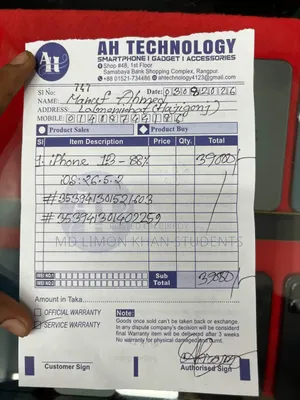 AH
AH TECHNOLOGY
SMARTPHONE | GADGET | ACCESSORIES
Shop #48, 1st Floor
Samabaya Bank Shopping Complex, Rangpur.
+88 01521-734486 ahtechnology4123@gmail.com
Sl No: 747 Date: 03082026
NAME: Maruf Ahmed
ADDRESS: Lalmonirhat
MOBILE:
Product Sales Product Buy
Sl Item Description Price Qty. Total
1. iPhone 13 - 88% 39000/-
iOS: 26.5.2
#353941301521603
#353941301402259
MD LIMON KHAN STUDENTS
IMEI NO 1 Sub Total 39000/-
IMEI NO 2
Amount in Taka
OFFICIAL WARRANTY
SERVICE WARRANTY
Note:
Goods once sold can't be taken back or exchange
In any dispute company's decision will be considered
final Warranty item will be delivered after 3 weeks
No warranty for physical damaged and burnt.
Customer Sign Authorised Sign